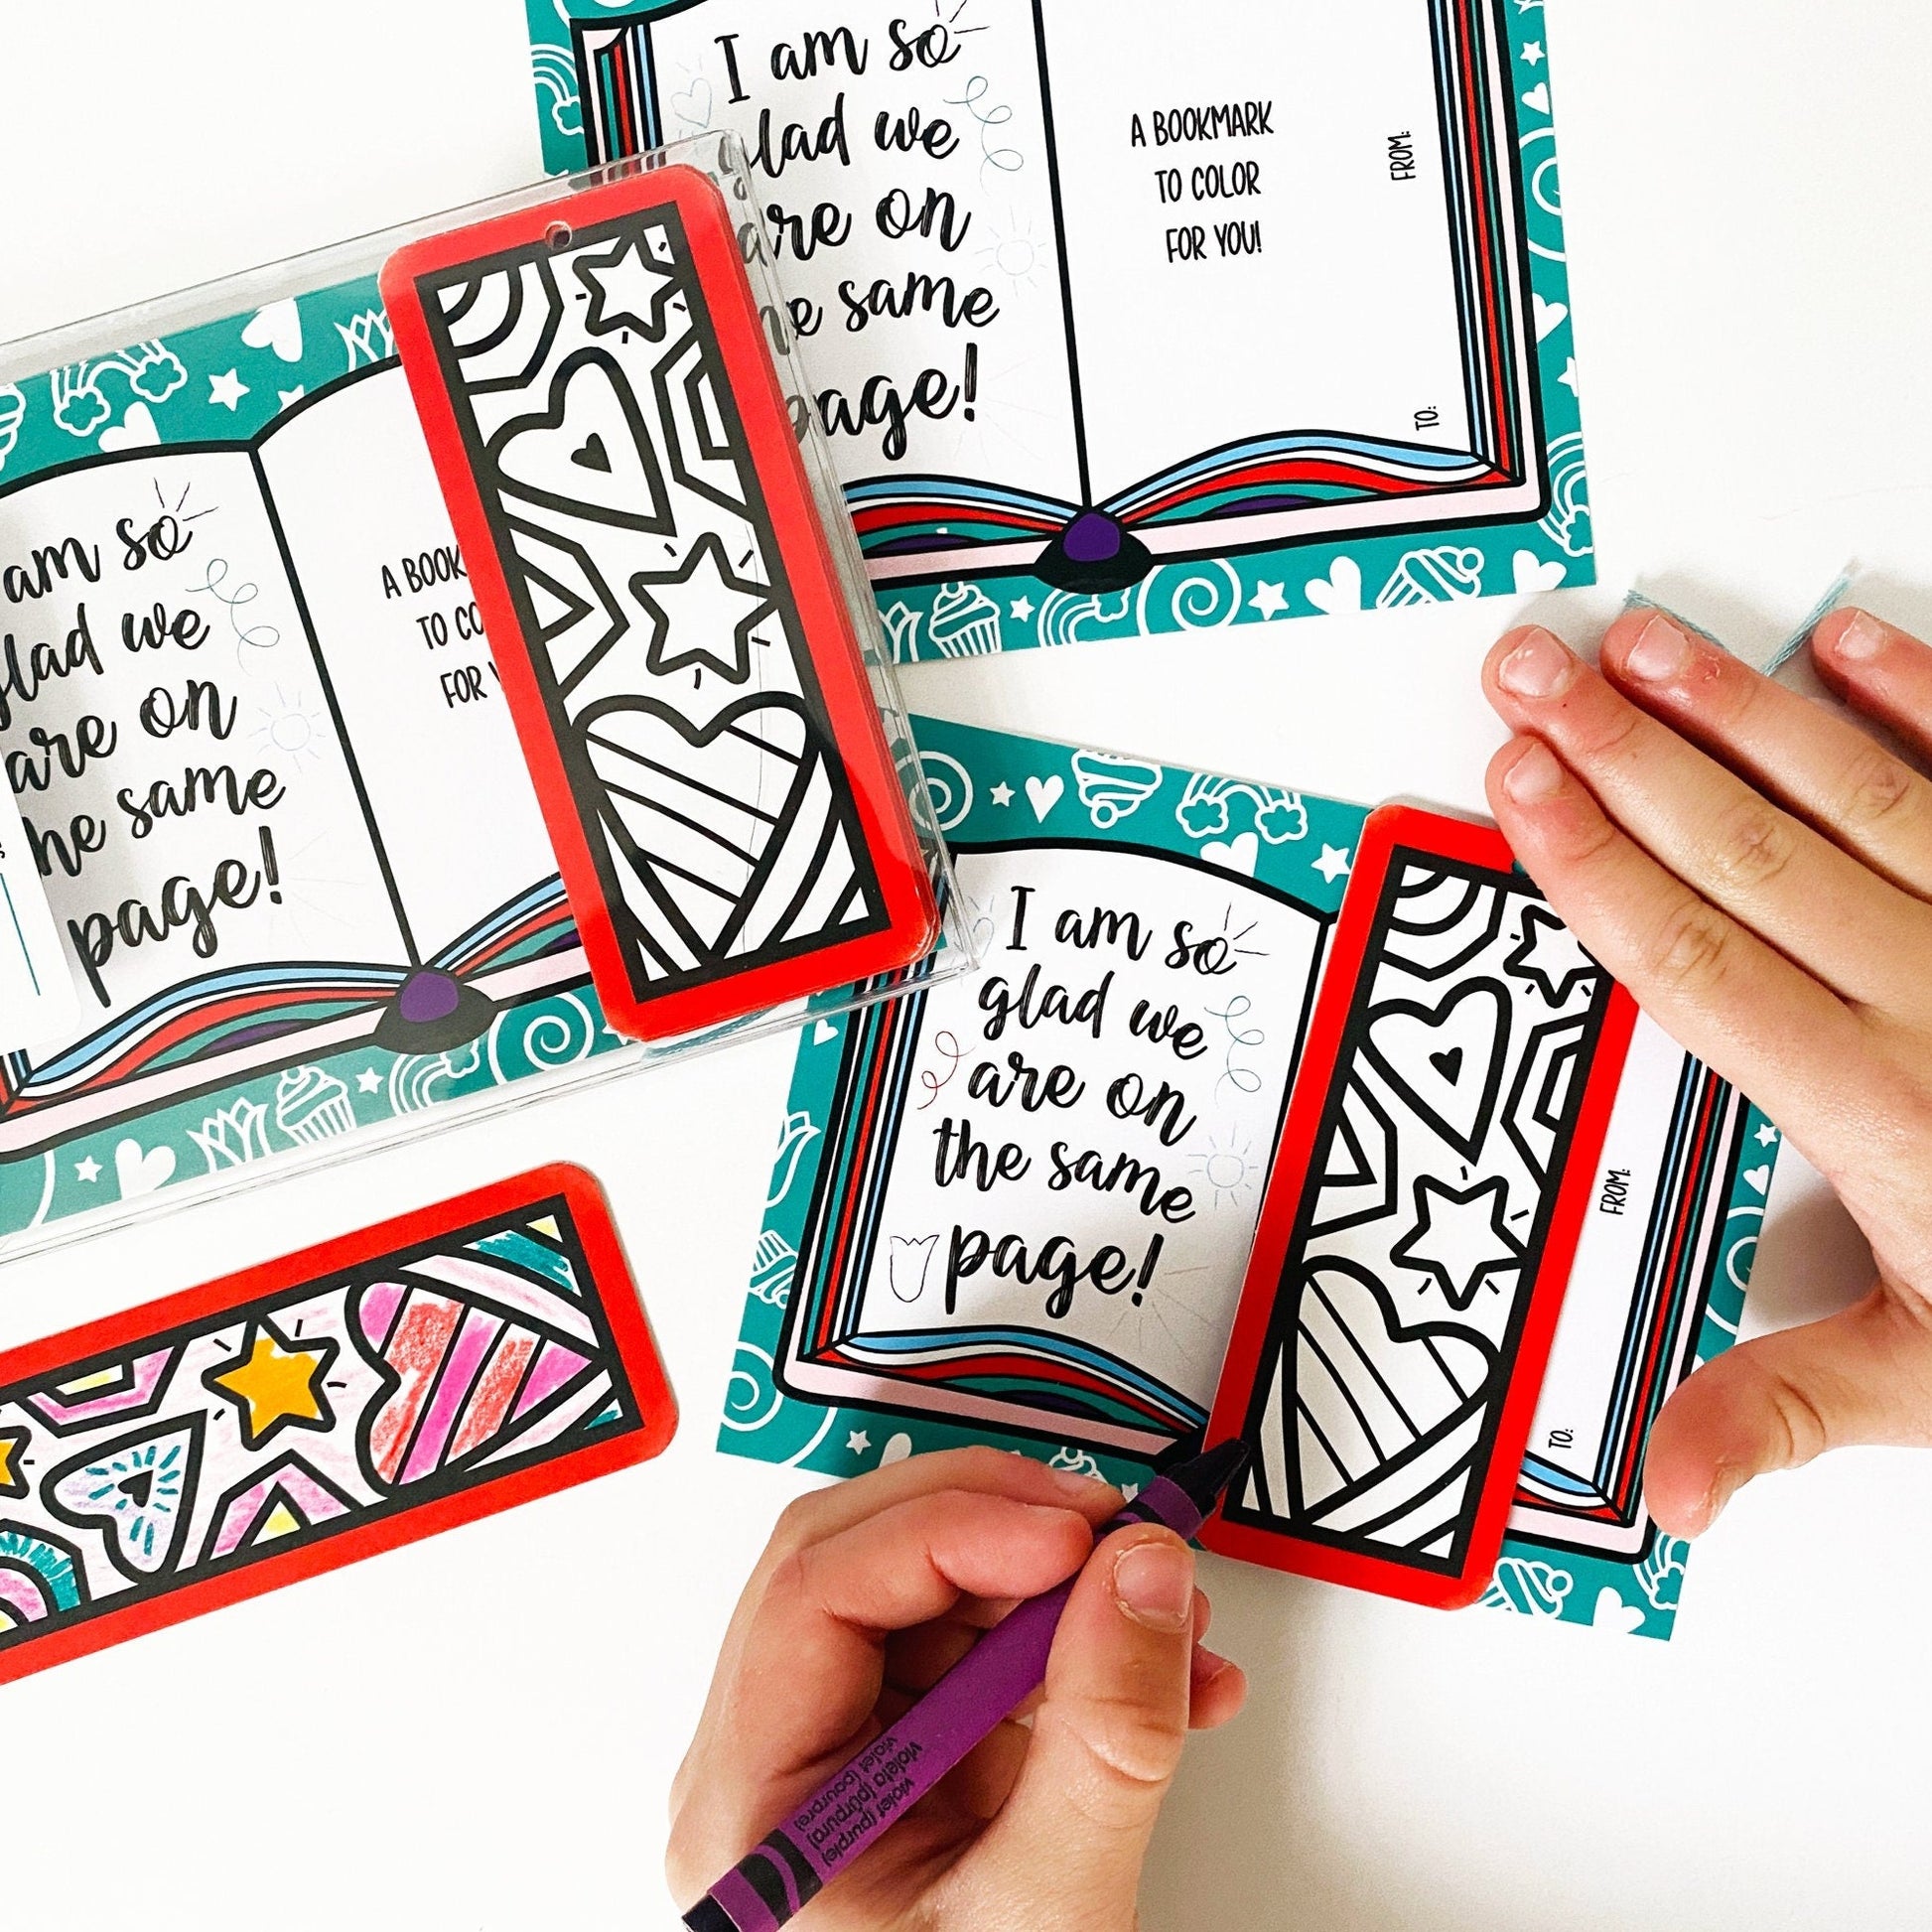 I am so
glad we
are on
same
page!
A BOOKMARK
TO COLOR
FOR YOU!
FROM:
TO:
am so
glad we
are on
he same
page!
A BOOK
TO CO
FOR
I am so
glad we
are on
the same
page!
FROM:
TO:
violet (purple)
violeta (púrpura)
violet (pourpre)